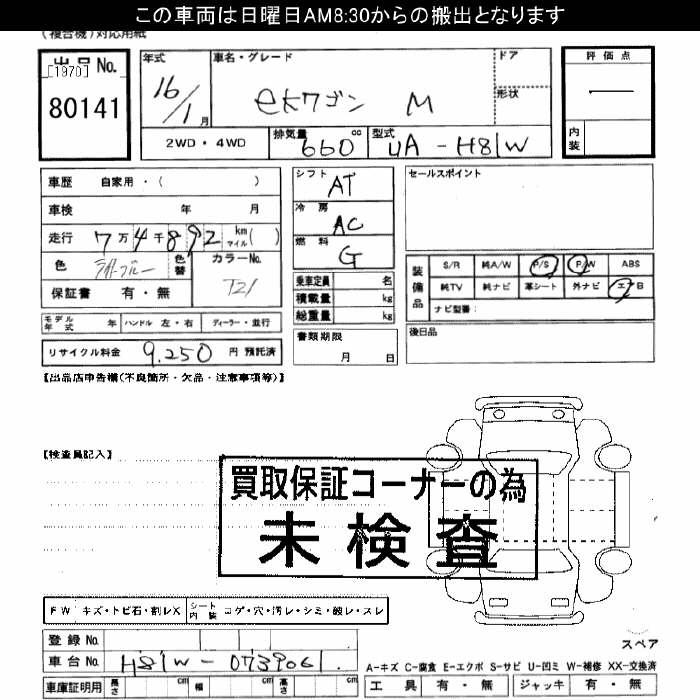 この車両は日曜日AM8:30からの搬出となります
(複合機)対応用紙
出品No.
[1970]
80141
年式
16/1月
車名・グレード
ekワゴン M
ドア
形状
2WD・4WD
排気量
660cc
型式
UA-H81W
評価点
内装
車歴 自家用・( )
車検 年 月
走行 7万4千892km マイル( )
色 ライトブルー 色替
カラーNo.
T21
保証書 有・無
モデル年式 年 ハンドル 左・右 ディーラー・並行
リサイクル料金 9,250円 預託済
シフト
AT
冷房
AC
燃料
G
乗車定員 名
積載量 kg
総重量 kg
書類期限
月 日
セールスポイント
装備品
S/R 純A/W P/S P/W ABS
純TV 純ナビ 革シート 外ナビ エアB
ナビ型番:
後日品
【出品店申告欄(不良箇所・欠品・注意事項等)】
【検査員記入】
買取保証コーナーの為
未検査
FW キズ・トビ石・割レX シート内装 コゲ・穴・汚レ・シミ・破レ・スレ
スペア
登録No.
車台No. H81W-0739061
車庫証明用 長さ cm 幅 cm 高さ cm
A-キズ C-腐食 E-エクボ S-サビ U-凹ミ W-補修 XX-交換済
工具 有・無 ジャッキ 有・無